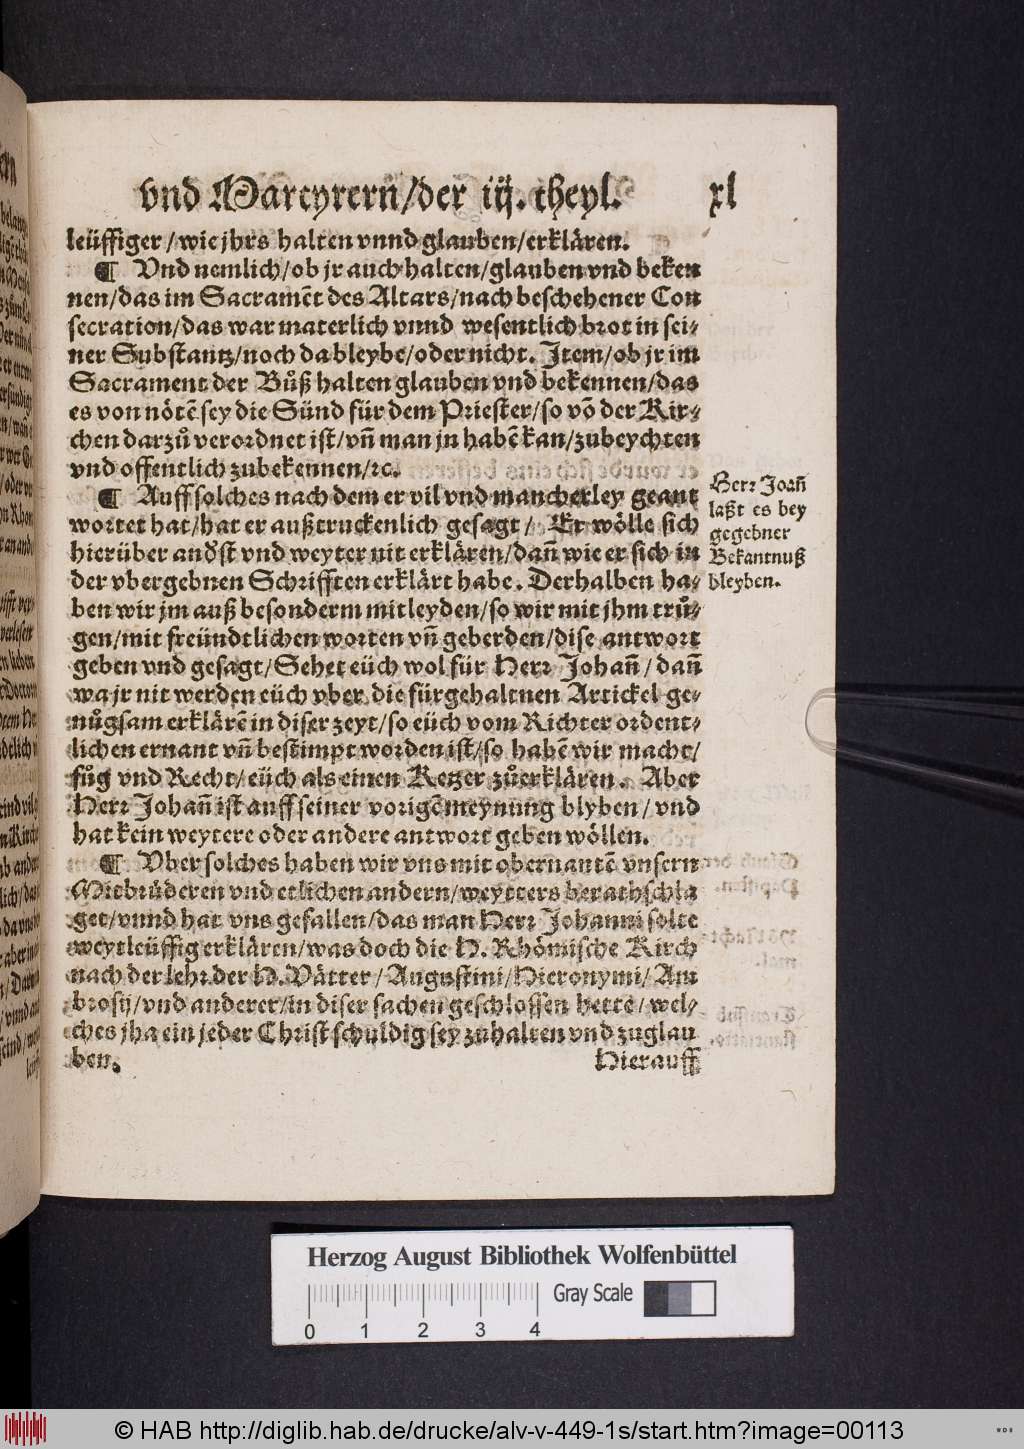 vnd Martyrern/der iij. theyl. xl
leüffiger/wie jhrs halten vnnd glauben/erklären.
¶ Vnd nemlich/ob jr auch halten/glauben vnd beken
nen/das im Sacramēt des Altars/nach beschehener Con
secration/das war materlich vnnd wesentlich brot in sei-
ner Substantz/noch da bleybe/oder nicht. Item/ob jr im
Sacrament der Bůß halten glauben vnd bekennen/das
es von nötē sey die Sünd für dem Priester/so vō der Kir-
chen darzů verordnet ist/vn̄ man jn habē kan/zubeychten
vnd offentlich zubekennen/ꝛc.
¶ Auff solches nach dem er vil vnd mancherley geant
wortet hat/hat er außtruckenlich gesagt/ Er wölle sich
hierüber anderst vnd weyter nit erklären/dan̄ wie er sich in
der vbergebnen Schrifften erklärt habe. Derhalben ha-
ben wir jm auß besonderm mitleyden/so wir mit jhm trů-
gen/mit freündtlichen worten vn̄ geberden/dise antwort
geben vnd gesagt/Sehet eüch wol für Herr Johan̄/dan̄
wa jr nit werden eüch vber die fürgehaltnen Artickel ge-
nůgsam erklärē in diser zeyt/so eüch vom Richter ordent-
lichen ernant vn̄ bestimpt worden ist/so habē wir macht/
fůg vnd Recht/eüch als einen Ketzer zůerklären. Aber
Herr Johan̄ ist auff seiner vorigē meynung blyben/vnd
hat kein weytere oder andere antwort geben wöllen.
¶ Vber solches haben wir vns mit obernantē vnsern
Mitbrüderen vnd etlichen andern/weytters berathschla
get/vnnd hat vns gefallen/das man Herr Johanni solte
weytleüffig erklären/was doch die H. Rhömische Kirch
nach der lehr der H. Vätter/Augustini/Hieronymi/Am
brosij/vnd anderer/in diser sachen geschlossen hettē/wel-
ches jha ein jeder Christ schuldig sey zuhalten vnd zuglau
ben. Hierauff
Herr Joan̄
laßt es bey
gegebner
Bekantnuß
bleyben.
Herzog August Bibliothek Wolfenbüttel
0 1 2 3 4
Gray Scale
© HAB http://diglib.hab.de/drucke/alv-v-449-1s/start.htm?image=00113